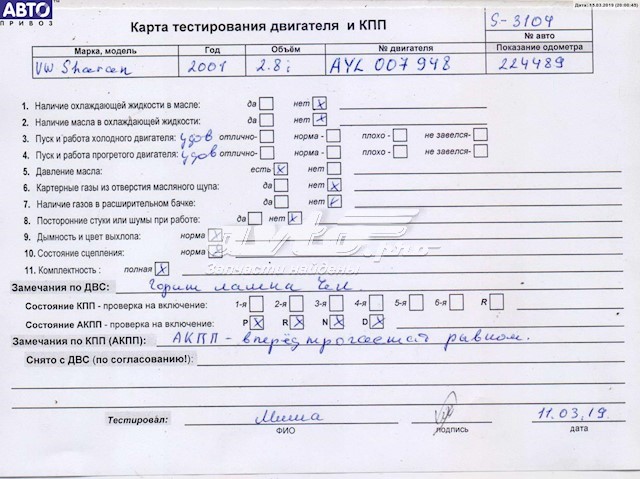 Дата: 15.03.2019 (20:00:45)
АВТО
ПРИВОЗ
Карта тестирования двигателя и КПП
S-3104
№ авто
Марка, модель Год Объём № двигателя Показание одометра
VW Sharan 2001 2.8i AYL 007948 224489
1. Наличие охлаждающей жидкости в масле: да нет x
2. Наличие масла в охлаждающей жидкости: да нет x
3. Пуск и работа холодного двигателя: удов отлично- норма - плохо - не завелся-
4. Пуск и работа прогретого двигателя: удов отлично- норма - плохо - не завелся-
5. Давление масла: есть x нет
6. Картерные газы из отверстия масляного щупа: да нет x
7. Наличие газов в расширительном бачке: да нет v
8. Посторонние стуки или шумы при работе: да нет x
9. Дымность и цвет выхлопа: норма x
10. Состояние сцепления: норма x
11. Комплектность : полная x
Avto.pro
Запчасти найдены
Замечания по ДВС: Горит лампа Чек.
Состояние КПП - проверка на включение: 1-я 2-я 3-я 4-я 5-я 6-я R
Состояние АКПП - проверка на включение: P x R x N x D x
Замечания по КПП (АКПП): АКПП - вперёд трогается рывком.
Снято с ДВС (по согласованию!):
Тестировал: Миша 11.03.19.
ФИО подпись дата